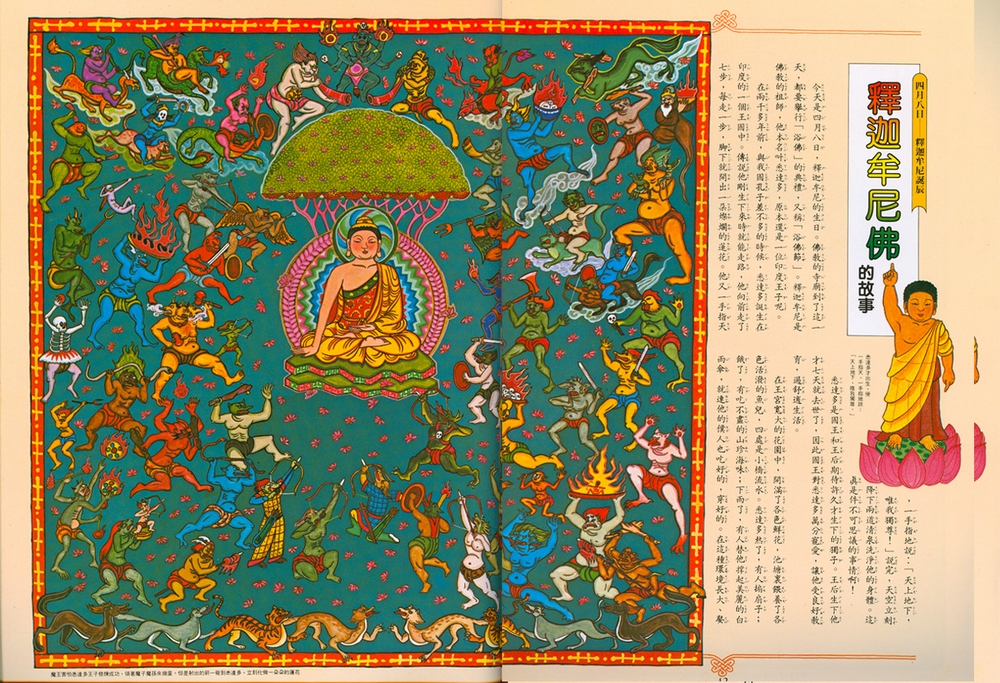 四月八日——釋迦牟尼誕辰
釋迦牟尼佛
的故事
今天是四月八日，釋迦牟尼的生日。佛教的寺廟到了這一
天，都要舉行「浴佛」的典禮，又稱「浴佛節」。釋迦牟尼是
佛教的祖師，他本名叫悉達多，原本還是一位印度王子呢。
在兩千多年前，與我國孔子差不多的時候，悉達多誕生在
印度的一個王國中。傳說他剛生下來時就能走路，他向前走了
七步，每走一步，腳下就開出一朵燦爛的蓮花。他又一手指天
悉達多才出生，便
一手指天，一手指地說：
「天上地下，唯我獨尊。」
，一手指地說：「天上地下，
唯我獨尊！」說完，天空立刻
降下兩道清泉洗淨他的身體。這
真是件不可思議的事情啊！
悉達多是國王和王后期待許久才生下的獨子。王后生下他
才七天就去世了，因此國王對悉達多萬分寵愛，讓他受良好教
育，過舒適生活。
在王宮寬大的花園中，開滿了各色鮮花，池塘裏餵養了各
色活潑的魚兒，四處是小橋流水。悉達多熱了，有人搧扇子；
餓了，有吃不盡的山珍海味；下雨了，有人替他撐起美麗的白
雨傘，就連他的僕人也吃好的，穿好的。在這種環境長大、養
魔王害怕悉達多王子修煉成功，領著魔子魔孫來搗蛋，但是射出的箭一碰到悉達多，立刻化做一朵朵的蓮花